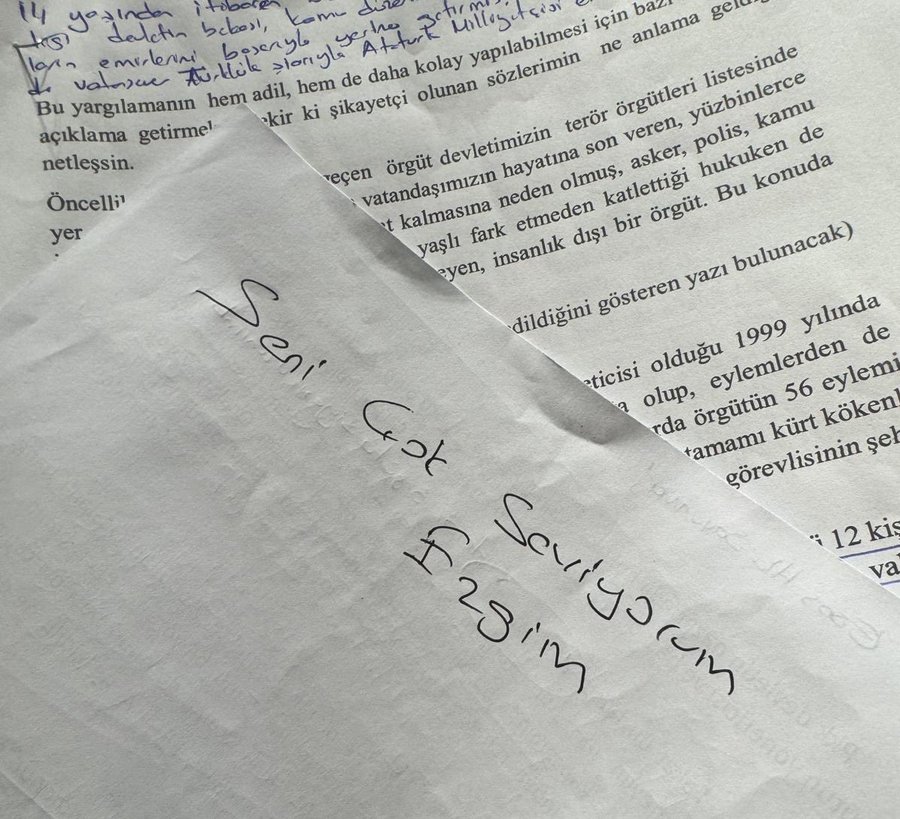 14 yaşından itibaren
dışı devletin bekası, kamu
ların emirlerini başarıyla yerine getirmiş
vatansever Türklük Atatürk Milliyetçisi
Bu yargılamanın hem adil, hem de daha kolay yapılabilmesi için bazı
açıklama getirmel ekir ki şikayetçi olunan sözlerimin ne anlama geldiğ
netleşsin.
Öncelli geçen örgüt devletimizin terör örgütleri listesinde
yer vatandaşımızın hayatına son veren, yüzbinlerce
t kalmasına neden olmuş, asker, polis, kamu
yaşlı fark etmeden katlettiği hukuken de
eyen, insanlık dışı bir örgüt. Bu konuda
dildiğini gösteren yazı bulunacak)
eticisi olduğu 1999 yılında
a olup, eylemlerden de
rda örgütün 56 eylemi
tamamı kürt kökenl
görevlisinin şeh
ü 12 kiş
val
Seni Çok Seviyorum
Ezgim